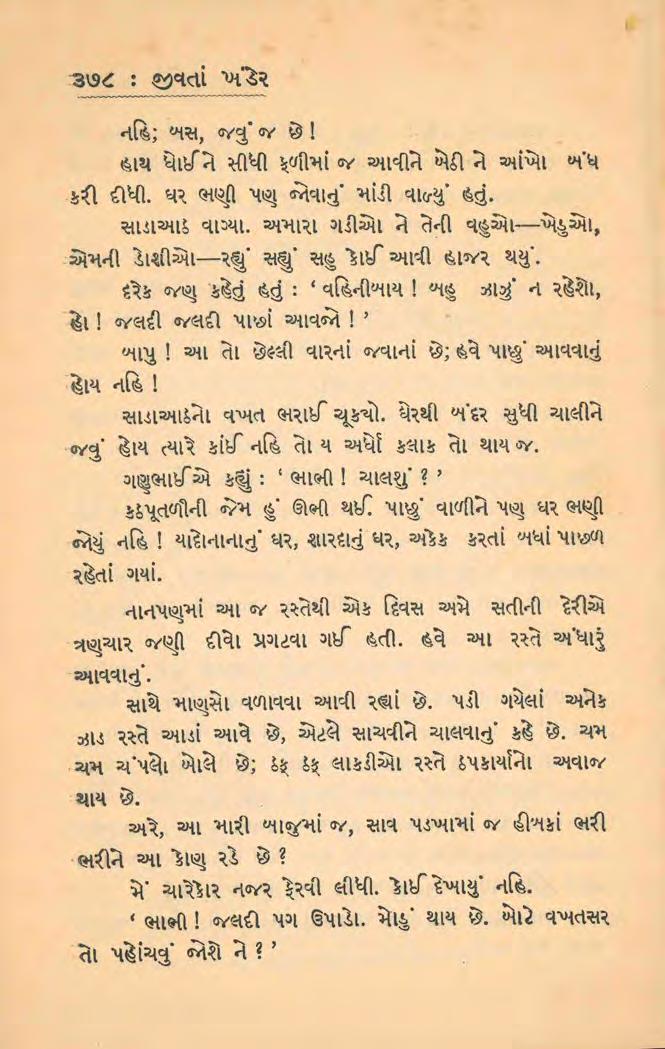 ૩૭૮ : જીવતાં ખંડેર
નહિ; બસ, જવું જ છે !
હાથ ધોઈને સીધી ફળીમાં જ આવીને બેઠી ને આંખો બંધ
કરી દીધી. ઘર ભણી પણ જોવાનું માંડી વાળ્યું હતું.
સાડાઆઠ વાગ્યા. અમારા ગડીઓ ને તેની વહુઓ—ખેડુઓ,
એમની ડોશીઓ—રહ્યું સહ્યું સહુ કોઈ આવી હાજર થયું.
દરેક જણ કહેતું હતું : ‘ વહિનીબાય ! બહુ ઝાઝું ન રહેશો,
હો ! જલદી જલદી પાછાં આવજો ! ’
બાપુ ! આ તો છેલ્લી વારનાં જવાનાં છે; હવે પાછું આવવાનું
હોય નહિ !
સાડાઆઠનો વખત ભરાઈ ચૂક્યો. ઘેરથી બંદર સુધી ચાલીને
જવું હોય ત્યારે કાંઈ નહિ તો ય અર્ધો કલાક તો થાય જ.
ગણુભાઈએ કહ્યું : ‘ ભાભી ! ચાલશું ? ’
કઠપૂતળીની જેમ હું ઊભી થઈ. પાછું વાળીને પણ ઘર ભણી
જોયું નહિ ! યાદોનાનાનું ઘર, શારદાનું ઘર, અકેક કરતાં બધાં પાછળ
રહેતાં ગયાં.
નાનપણમાં આ જ રસ્તેથી એક દિવસ અમે સતીની દેરીએ
ત્રણચાર જણી દીવો પ્રગટવા ગઈ હતી. હવે આ રસ્તે અંધારું
આવવાનું.
સાથે માણસો વળાવવા આવી રહ્યાં છે. પડી ગયેલાં અનેક
ઝાડ રસ્તે આડાં આવે છે, એટલે સાચવીને ચાલવાનું કહે છે. ચમ
ચમ ચંપલો બોલે છે; ઠક્ ઠક્ લાકડીઓ રસ્તે ઠપકાર્યાનો અવાજ
થાય છે.
અરે, આ મારી બાજુમાં જ, સાવ પડખામાં જ હીબકાં ભરી
ભરીને આ કોણ રડે છે ?
મેં ચારેકોર નજર ફેરવી લીધી. કોઈ દેખાયું નહિ.
‘ ભાભી ! જલદી પગ ઉપાડો. મોડું થાય છે. બોટે વખતસર
તો પહોંચવું જોશે ને ? ’